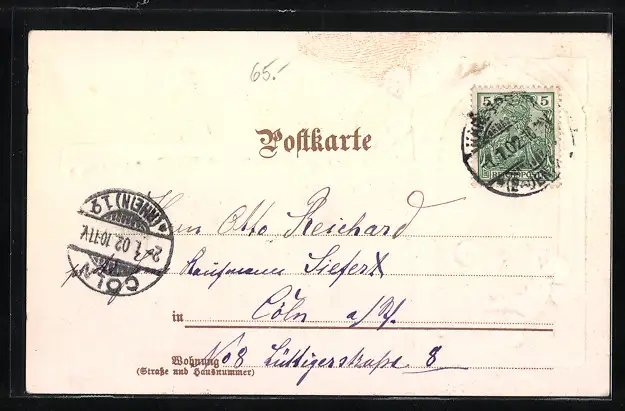 65.-
5 5
REICHSPOST
1.02
Postkarte
Herrn Otto Reichard
Kaufmann Siefert
in Cöln a/Rh.
Wohnung No 8 Lüttigerstraße 8
(Straße und Hausnummer)
CÖLN
2.1.02.10-11V.
*(RHEIN) 1.9